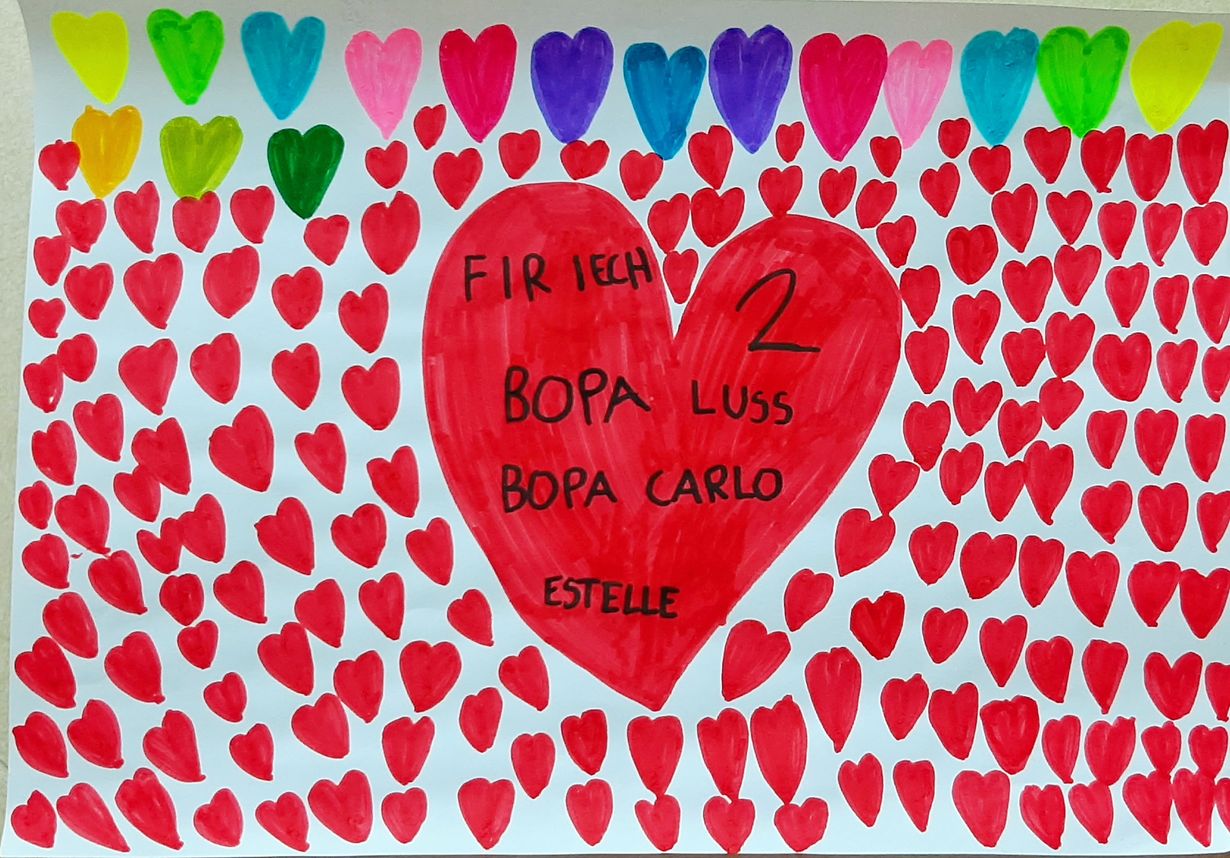 FIR IECH 2
BOPA LUSS
BOPA CARLO
ESTELLE